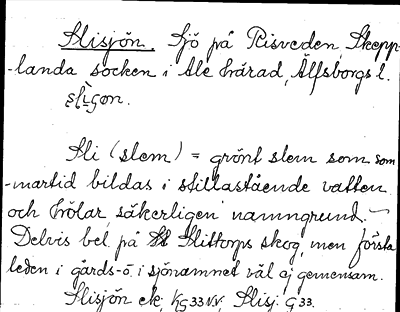 Slisjön. Sjö på Risveden, Skepp-
-landa socken i Ale härad, Älfsborgs l.
Sli (slem) = grönt slem som som
-martid bildas i stillastående vatten
och hölar, säkerligen namngrund. –
Delvis bel. på Slittorps skog, men första
leden i gårds- o. i sjönamnet väl ej gemensam.
Slisjön ek. KG33NV, Slisj. G33.